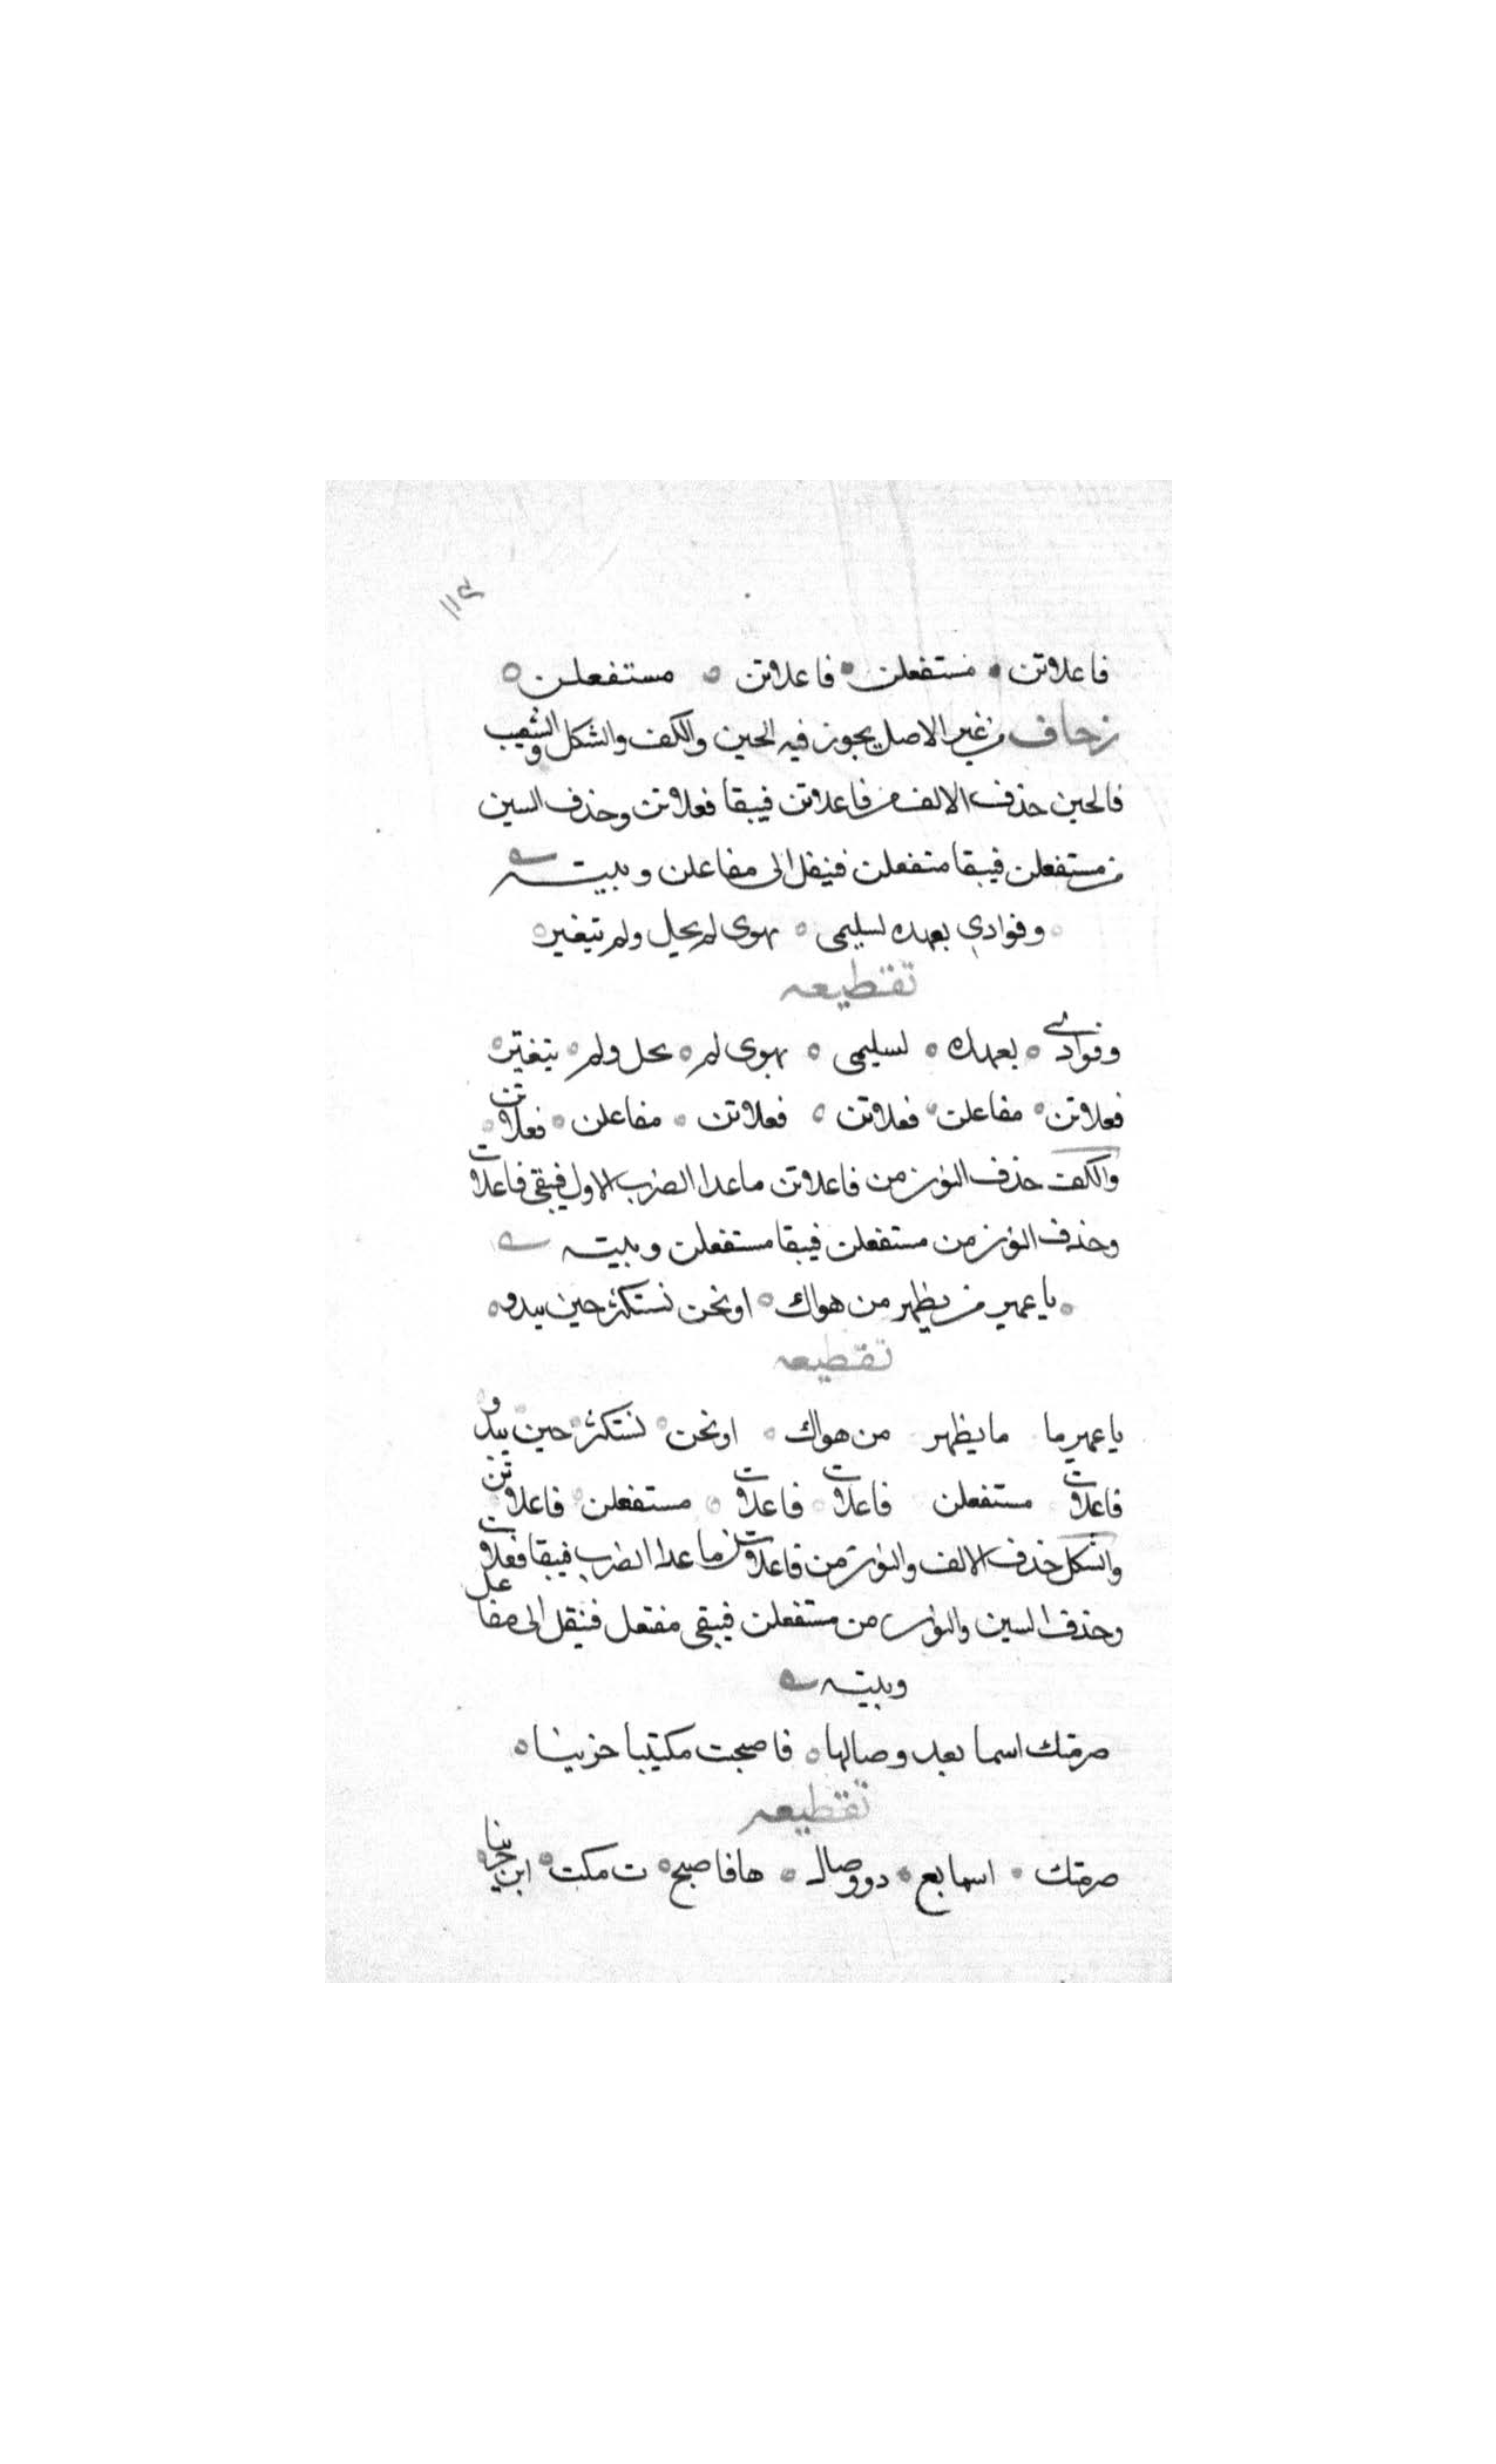 ١١٤
فاعلاتن مستفعلن فاعلاتن مستفعلن
زحاف من غير الاصل يجوز فيه الخبن والكف والشكل والتشعيب
فالخبن حذف الالف من فاعلاتن فيبقا فعلاتن وحذف السين
من مستفعلن فيبقا متفعلن فنيقل الى مفاعلن وبيته
وفوادي بعهده لسليمى بهوى لم يحل ولم يتغير
تقطيعه
وفوادي بعهده لسليمى بهوى لم يحل ولم يتغير
فعلاتن مفاعلن فعلاتن فعلاتن مفاعلن فعلاتن
والكف حذف النون من فاعلاتن ماعدا الضرب الاول فيبقى فاعلات
وحذف النون من مستفعلن فيبقا مستفعلن وبيته
يا عمير من يظهر من هواك او نحن نستكثر حين يبدو
تقطيعه
يا عمير ما ما يظهر من هواك او نحن نستكثر حين يبدو
فاعلات مستفعلن فاعلات فاعلات مستفعلن فاعلاتن
والشكل حذف الالف والنون من فاعلاتن ماعدا الضرب فيبقا فعلات
وحذف السين والنون من مستفعلن فيبقى مفتعل فنيقل الى مفاعل
وبيته
صرمتك اسما بعد وصالها فاصبحت مكتيبا حزينا
تقطيعه
صرمتك اسما بع دووصال ها فاصبح ت مكت ابن حزينا